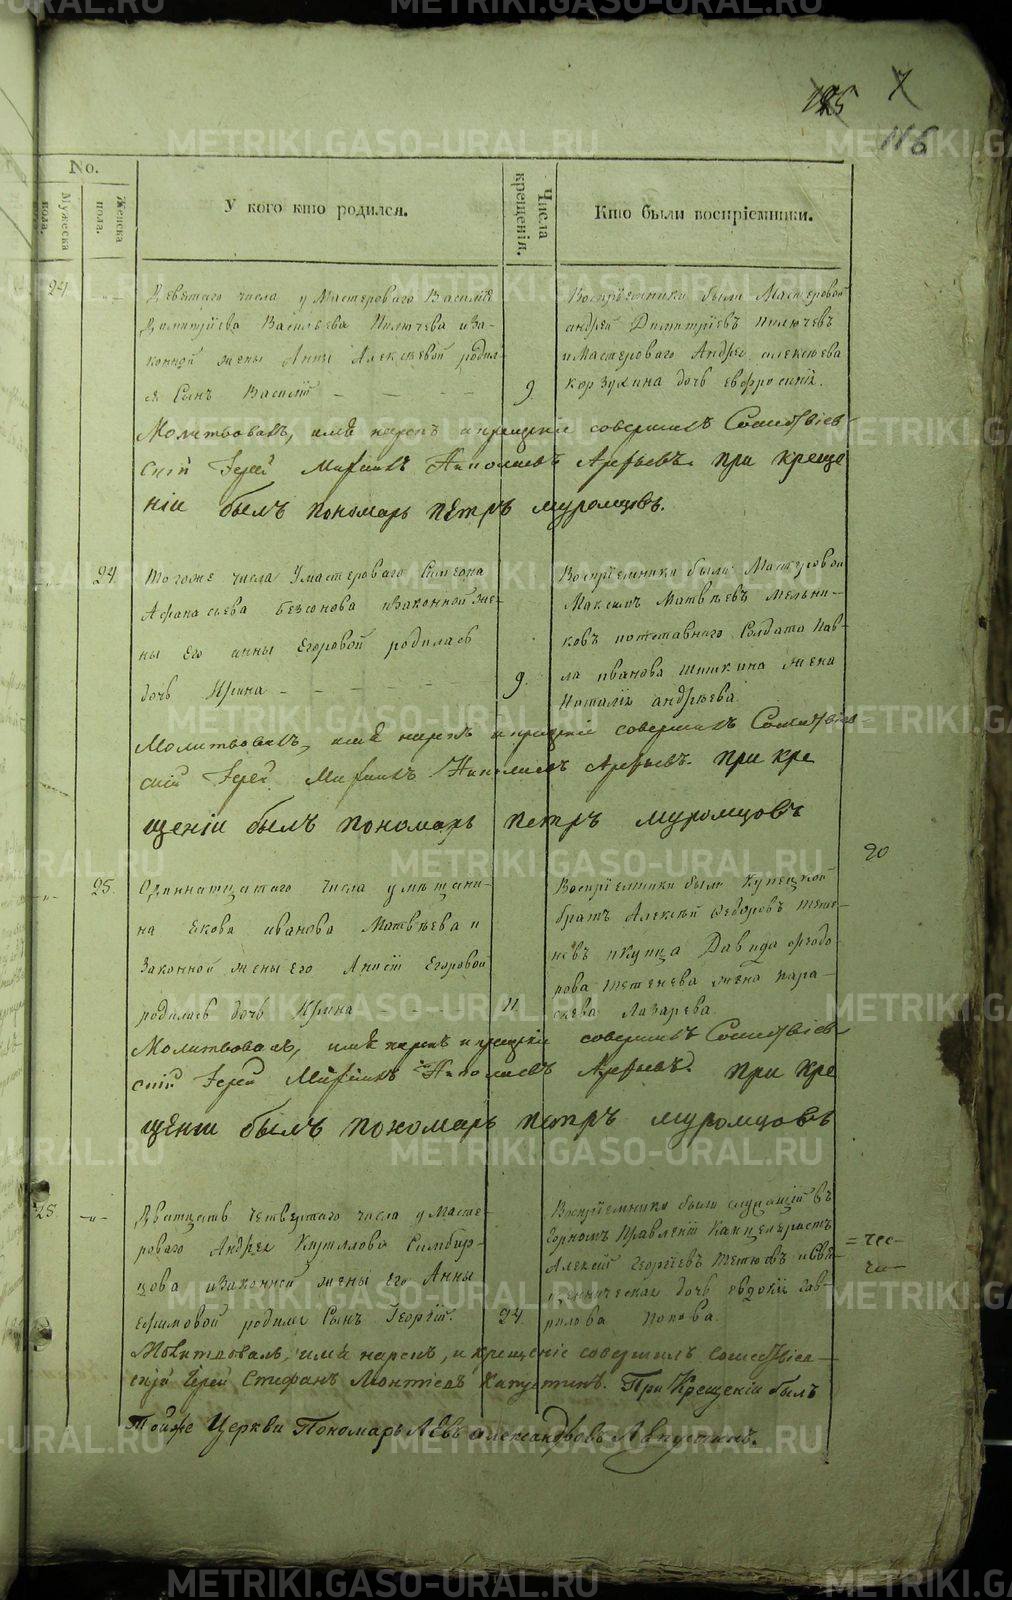 METRIKI.GASO-URAL.RU
125 7
116
No.
Мужеска пола.
Женска пола.
У кого кто родился.
Числа крещенія.
Кто были воспріемники.
24 Девятаго числа у Мастероваго Василія
Димитріева Васильева Пилючева иЗа-
конной жены Анны Алексѣевой родил
ся Сынъ Василій 9.
Воспріемники были Мастеровой
андрей Димитріевъ Пилючевъ
иМастероваго Андрея алексѣева
корзухина дочь евфросинія.
Молитвовалъ, имя нарекъ и крещеніе совершилъ Сошествіев-
скій Іерей Николаевъ Арефьевъ. при креще
ніи былъ пономарь петръ муромцовъ.
24. Тогоже числа Умастероваго Симеона
Афанасьева безсонова изаконной же-
ны Его анны Егоровой родилась
дочь Ирина 9.
Воспріемники были Мастеровой
Максимъ Матвѣевъ Мельни-
ковъ иотставнаго Солдата Пав-
ла иванова шишкина жена
Наталія андрѣева
Молитвовалъ, имя нарекъ и крещеніе совершилъ Сошествіев-
скій Іерей Николаевъ Арефьевъ. при кре
щеніи былъ пономарь петръ муромцовъ
20
25. Одиннатцатаго числа умѣщани-
на Якова иванова Матвѣева и
Законной жены его Анисіи Егоровой
родилась дочь Ирина 11
Воспріемники были купецкой
братъ Алексѣй федоровъ
икупца Давида федо-
рова жена пара-
скева Лазарева
Молитвовалъ, имя нарекъ и крещеніе совершилъ Сошествіев-
скій Іерей Николаевъ Арефьевъ. при кре
щеніи былъ пономарь петръ муромцовъ
25 Дватцать четвертаго числа у Масте-
роваго Андрея Кирилова Симбир-
цова иЗаконной жены его Анны
ефимовой родился Сынъ Георгій. 24.
Воспріемники были служащій въ
Горномъ Правленіи Канцеляристъ
Алексѣй Георгіевъ исвя-
щенническая дочь евдокія гав-
рилова попова.
Молитвовалъ, имя нарекъ, и крещеніе совершилъ Сошествіев-
скій Іерей Стефанъ Капустинъ. При Крещеніи былъ
Тойже Церкви Пономарь Левъ Александровъ